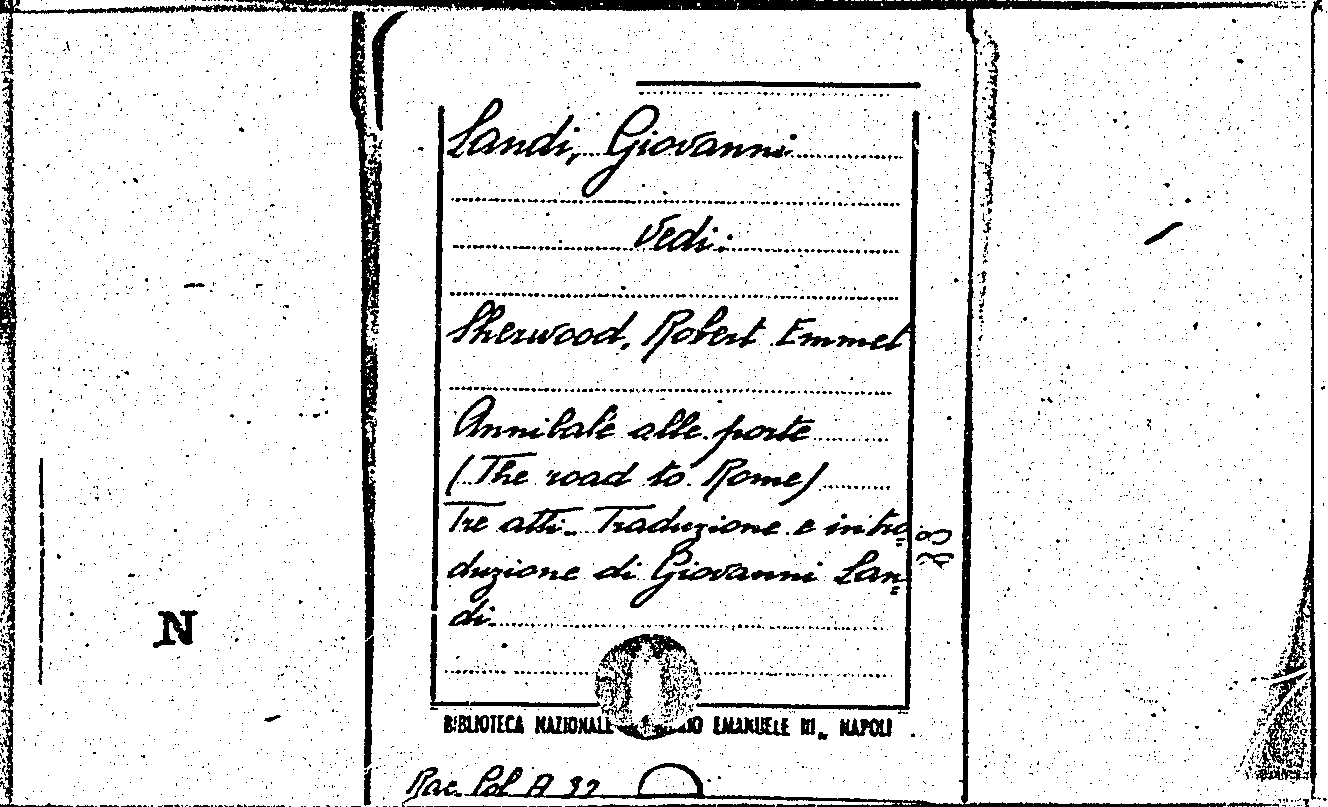 Landi, Giovanni
vedi:
Sherwood, Robert Emmet
Annibale alle porte
(The road to Rome)
Tre atti. Traduzione e intro=
duzione di Giovanni Lan=
di.
N
BIBLIOTECA NAZIONALE EMANUELE III„ NAPOLI
Rac. Pol. A 32